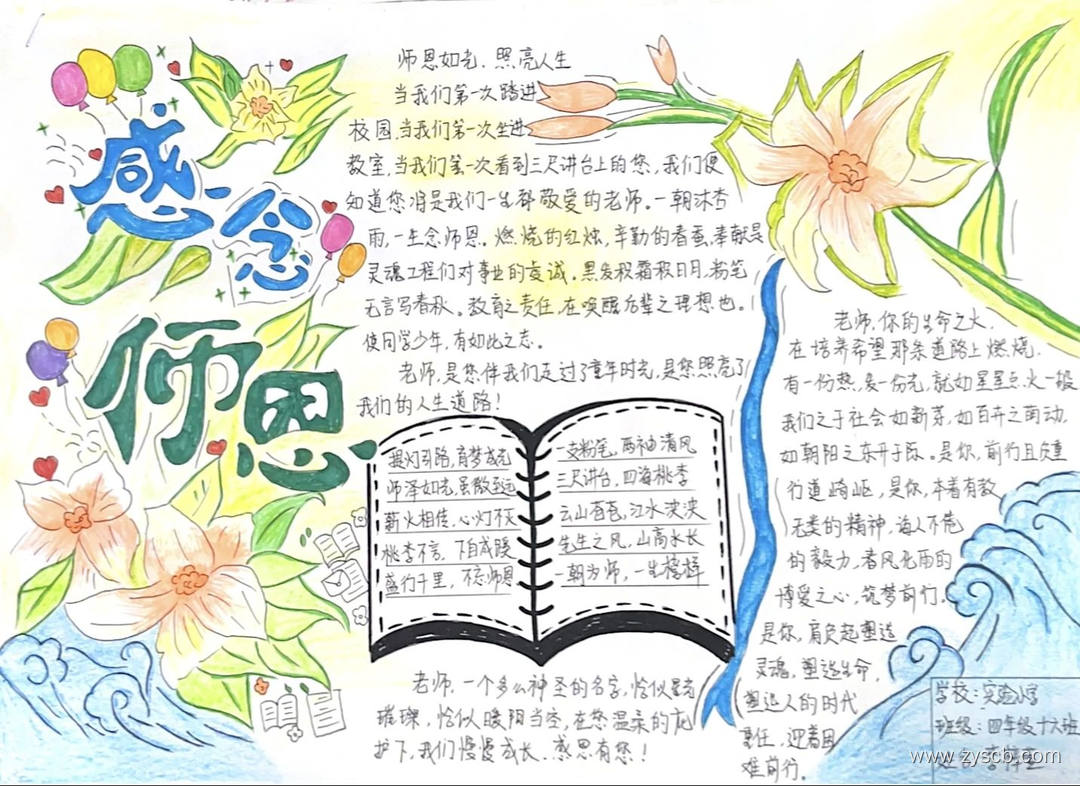 感念
师恩
师恩如光，照亮人生
当我们第一次踏进
校园，当我们第一次坐进
教室，当我们第一次看到三尺讲台上的您，我们便
知道您将是我们一生都敬爱的老师。一朝沐杏
雨，一生念师恩。燃烧的红烛，辛勤的春蚕，奉献是
灵魂工程们对事业的虔诚。黑发积霜积日月，粉笔
无言写春秋。教育之责任，在唤醒后辈之理想也。
使同学少年，有如此之志。
老师，是您伴我们走过了童年时光，是您照亮了
我们的人生道路！
提灯引路，育梦成光
师泽如光，虽微至远
薪火相传，心灯不灭
桃李不言，下自成蹊
盛行千里，不忘师恩
一支粉笔，两袖清风
三尺讲台，四海桃李
云山苍苍，江水泱泱
先生之风，山高水长
一朝为师，一生榜样
老师，一个多么神圣的名字，恰似星光
璀璨，恰似暖阳当空，在您温柔的庇
护下，我们慢慢成长。感恩有您！
老师，你的生命之火，
在培养希望那条道路上燃烧，
有一份热，发一份光，就如星星点火一般
我们之于社会如新芽，如百卉之萌动，
如朝阳之东升于际。是你，前行且负重
行道崎岖，是你，本着有教
无类的精神，诲人不倦
的毅力，春风化雨的
博爱之心，筑梦前行。
是你，肩负起塑造
灵魂，塑造生命，
塑造人的时代
责任，迎着困
难前行。
学校：实验小学
班级：四年级十六班
www.zyscb.com